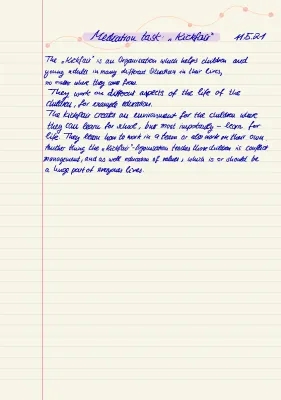 Mediation task - „Kickfair" 11.5.21
The „Kickfair" is an Organisation which helps children and
young adults in many different situation in their lives,
no matter where they come from.
They work on different aspects of the life of the
children, for example education.
The Kickfair creates an environment for the children where
they can learn for school, but most importantly - learn for
life. They learn how to work in a team or also work on their own.
Another thing the „Kickfair"-Organisation teaches those children is conflict
management, and as well education of values, which is or should be
a huge part of everyones lives.